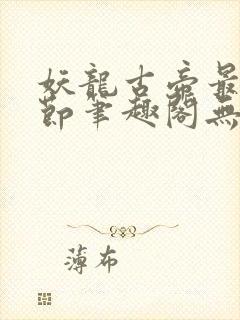 妖龍古帝最
節筆趣閣無
薄布